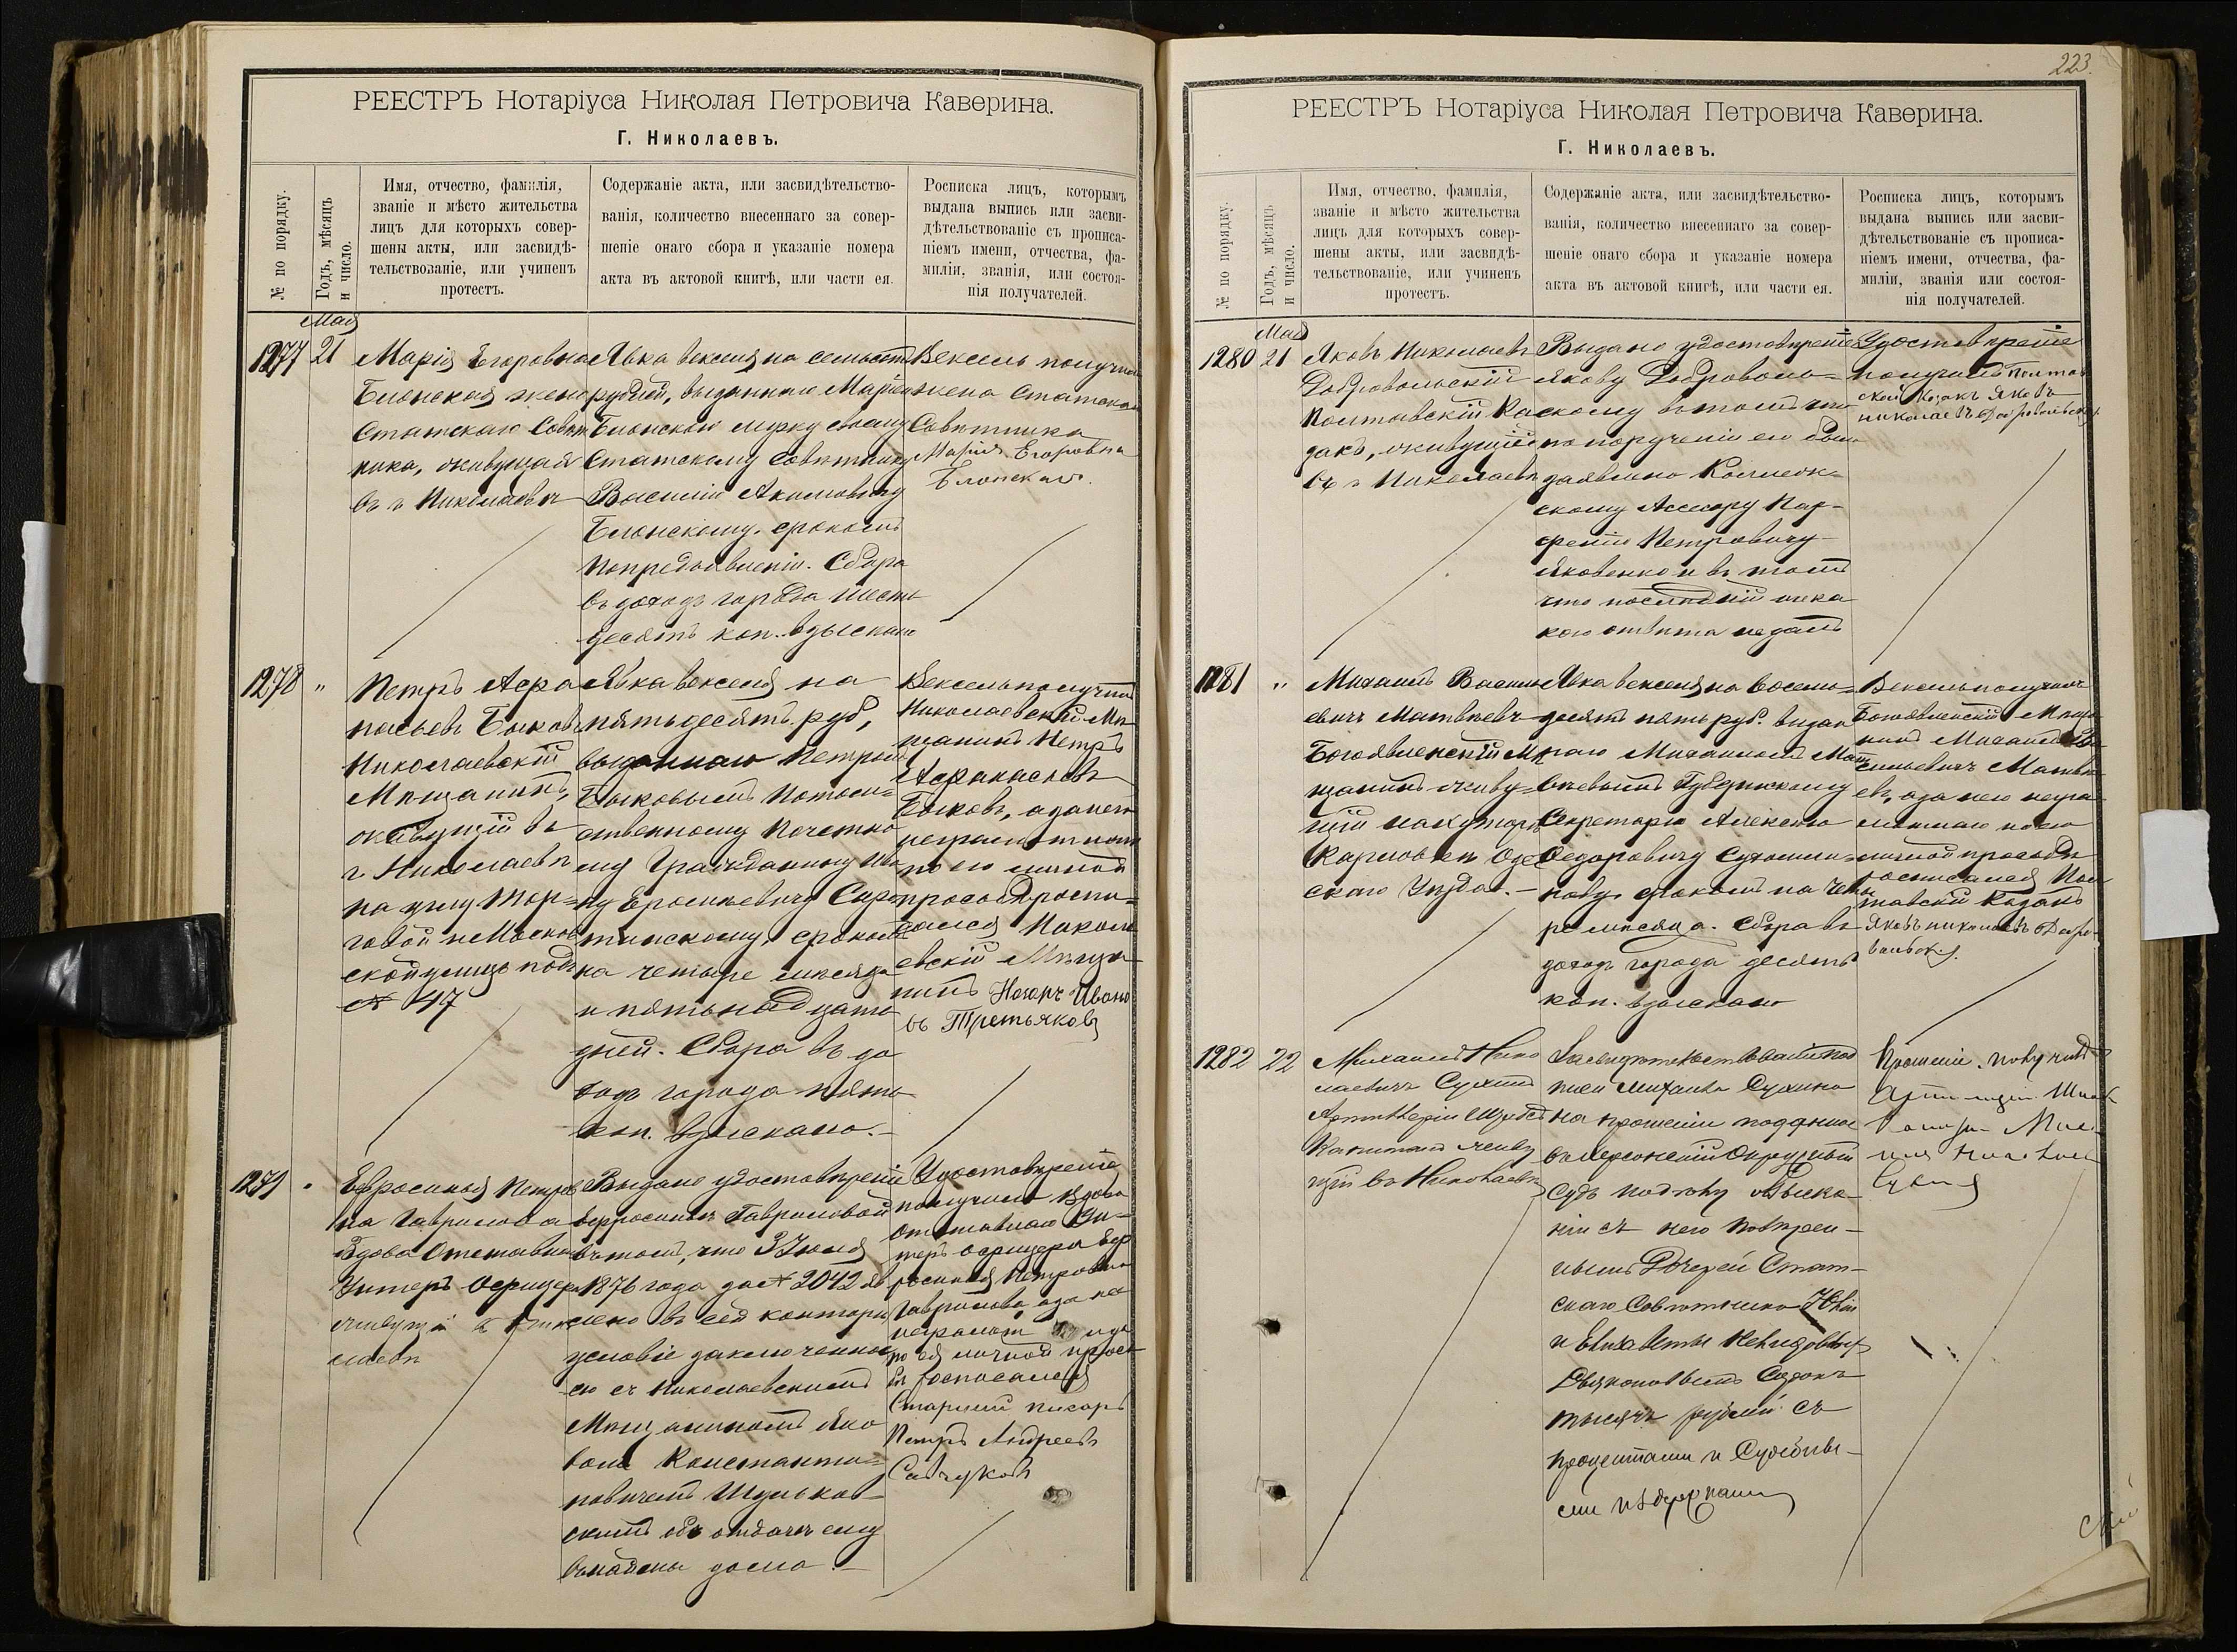 РЕЕСТРЪ Нотаріуса Николая Петровича Каверина.
Г. Николаевъ.
№ по порядку.
Годъ, мѣсяцъ
и число.
Имя, отчество, фамилія,
званіе и мѣсто жительства
лицъ для которыхъ совер-
шены акты, или засвидѣ-
тельствованіе, или учиненъ
протестъ.
Содержаніе акта, или засвидѣтельство-
ванія, количество внесеннаго за совер-
шеніе онаго сбора и указаніе номера
акта въ актовой книгѣ, или части ея.
Росписка лицъ, которымъ
выдана выпись или засви-
дѣтельствованіе съ прописа-
ніемъ имени, отчества, фа-
миліи, званія, или состоя-
нія получателей.
Мая
1277
21
Марія Егоровна
Блонская жена
Статскаго Совѣт
ника, живущая
въ г Николаевѣ
Явка векселя на семьсотъ
рублей, выданнаго Маріею
Блонскою мужу своему
Статскому Совѣтнику
Василію Акимовичу
Блонскому, срокомъ
по предъявленію. Сбора
въ доходъ города шесть
десятъ коп. взыскано
Вексель получила
жена Статскаго
Совѣтника
Марія Егоровна
Блонская.
1278
"
Петръ Афа
насьевъ Быковъ
Николаевскій
Мѣщанинъ,
живущій въ
г Николаевѣ
на углу Тор-
говой и Москов
ской улицъ подъ
№ 47
Явка векселя на
пятьдесятъ руб,
выданнаго Петромъ
Быковымъ Потом-
ственному Почетно
му Гражданину Ива
ну Ерофеевичу
срокомъ
на четыре мѣсяца
и пятьнадцать
дней. Сбора въ до
ходъ города пять
коп. взыскано.-
Вексель получилъ
Николаевскій Мѣ-
щанинъ Петръ
Афанасьевъ
Быковъ, а за него
неграмотнаго
по его личной
просьбѣ роспи-
сался Никола
евскій Мѣща-
нинъ Назаръ Ивано
въ Третьяковъ
1279
"
Евфросинья Петров
на Гаврилова
Вдова Отставнаго
Унтеръ Офицера
живущая въ Нико
лаевѣ
Выдано удостовѣреніе
Евфросиньѣ Гавриловой
въ томъ, что 3 Іюля
1876 года за № 2042 яв
лено въ сей конторѣ
условіе заключенное
ею съ Николаевскимъ
Мѣщаниномъ Яко
вомъ Константи-
новичемъ Шульков-
скимъ объ отдачѣ ему
во наемъ дома.-
Удостовѣреніе
получила Вдова
Отставнаго Ун-
теръ Офицера Евф
росинья Петровна
Гаврилова, а за не
неграмот
по ея личной прось
бѣ росписался
Старшій писарь
Петръ Андреевъ
Савчуковъ
223.
РЕЕСТРЪ Нотаріуса Николая Петровича Каверина.
Г. Николаевъ.
№ по порядку.
Годъ, мѣсяцъ
и число.
Имя, отчество, фамилія,
званіе и мѣсто жительства
лицъ для которыхъ совер-
шены акты, или засвидѣ-
тельствованіе, или учиненъ
протестъ.
Содержаніе акта, или засвидѣтельство-
ванія, количество внесеннаго за совер-
шеніе онаго сбора и указаніе номера
акта въ актовой книгѣ, или части ея.
Росписка лицъ, которымъ
выдана выпись или засви-
дѣтельствованіе съ прописа-
ніемъ имени, отчества, фа-
миліи, званія или состоя-
нія получателей.
Мая
1280
21
Яковъ Николаевъ
Добровольскій
Полтавскій Ка
закъ, живущій
въ г Николаевѣ
Выдано удостовѣреніе
Якову Доброволь-
скому въ томъ что
по порученію его было
заявлено Коллеж-
скому Асесору Пар-
фенію Петровичу
Яковенко и въ томъ
что послѣдній ника
кого отвѣта не далъ
Удостовѣреніе
получилъ Полтав
ской Козакъ Яковъ
николаевъ Добровольскій
1281
"
Михаилъ Василь
евичъ Матвѣевъ
Богоявленскій Мѣ
щанинъ живу-
щій на хуторѣ
Карловкѣ Одес
скаго Уѣзда.-
Явка векселя на восемь-
десятъ пять руб. выдан
наго Михаиломъ Мат
вѣевымъ Губернскому
Секретарю Алексѣю
Федоровичу Сухомли-
нову, срокомъ на четы
ре мѣсяца. Сбора въ
доходъ города десять
коп. взыскано
Вексель получилъ
Богоявленскій Мѣща
нинъ Михаилъ Ва
сильевичъ Матвѣ
евъ, а за него негра-
мотнаго по его
личной просьбѣ
росписался Пол
тавскій Казакъ
Яковъ николаевъ Добро
вольскій.
1282
22
Михаилъ Нико
лаевичъ Сухинъ
Артиллеріи Штабсъ
Капитанъ живу
щій въ Николаевѣ
Засвидѣтельствованіе под
писи Михаила Сухина
на прошеніи поданномъ
въ Херсонскій Окружный
Судъ по дѣлу о взыска-
ніи съ него повѣрен-
нымъ Дочерей Стат-
скаго Совѣтника Юліи
и Елизаветы
Дьяконовымъ Сорокъ
тысячъ рублей съ
процентами и Судебны-
ми издержками
Прошеніе получилъ